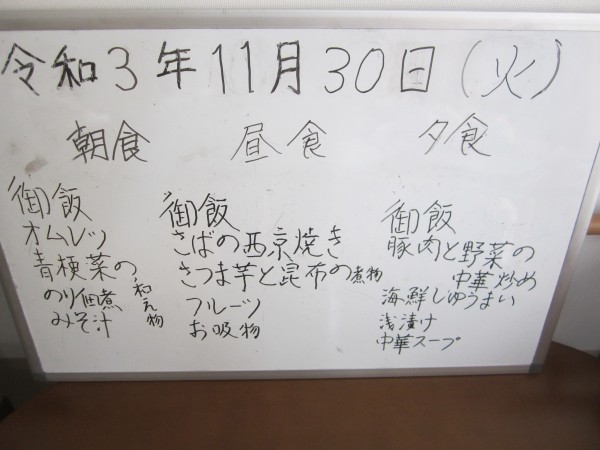 令和3年11月30日(火)
朝食
御飯
オムレツ
青梗菜の和え物
のり佃煮
みそ汁
昼食
御飯
さばの西京焼き
さつま芋と昆布の煮物
フルーツ
お吸物
夕食
御飯
豚肉と野菜の
中華炒め
海鮮しゅうまい
浅漬け
中華スープ